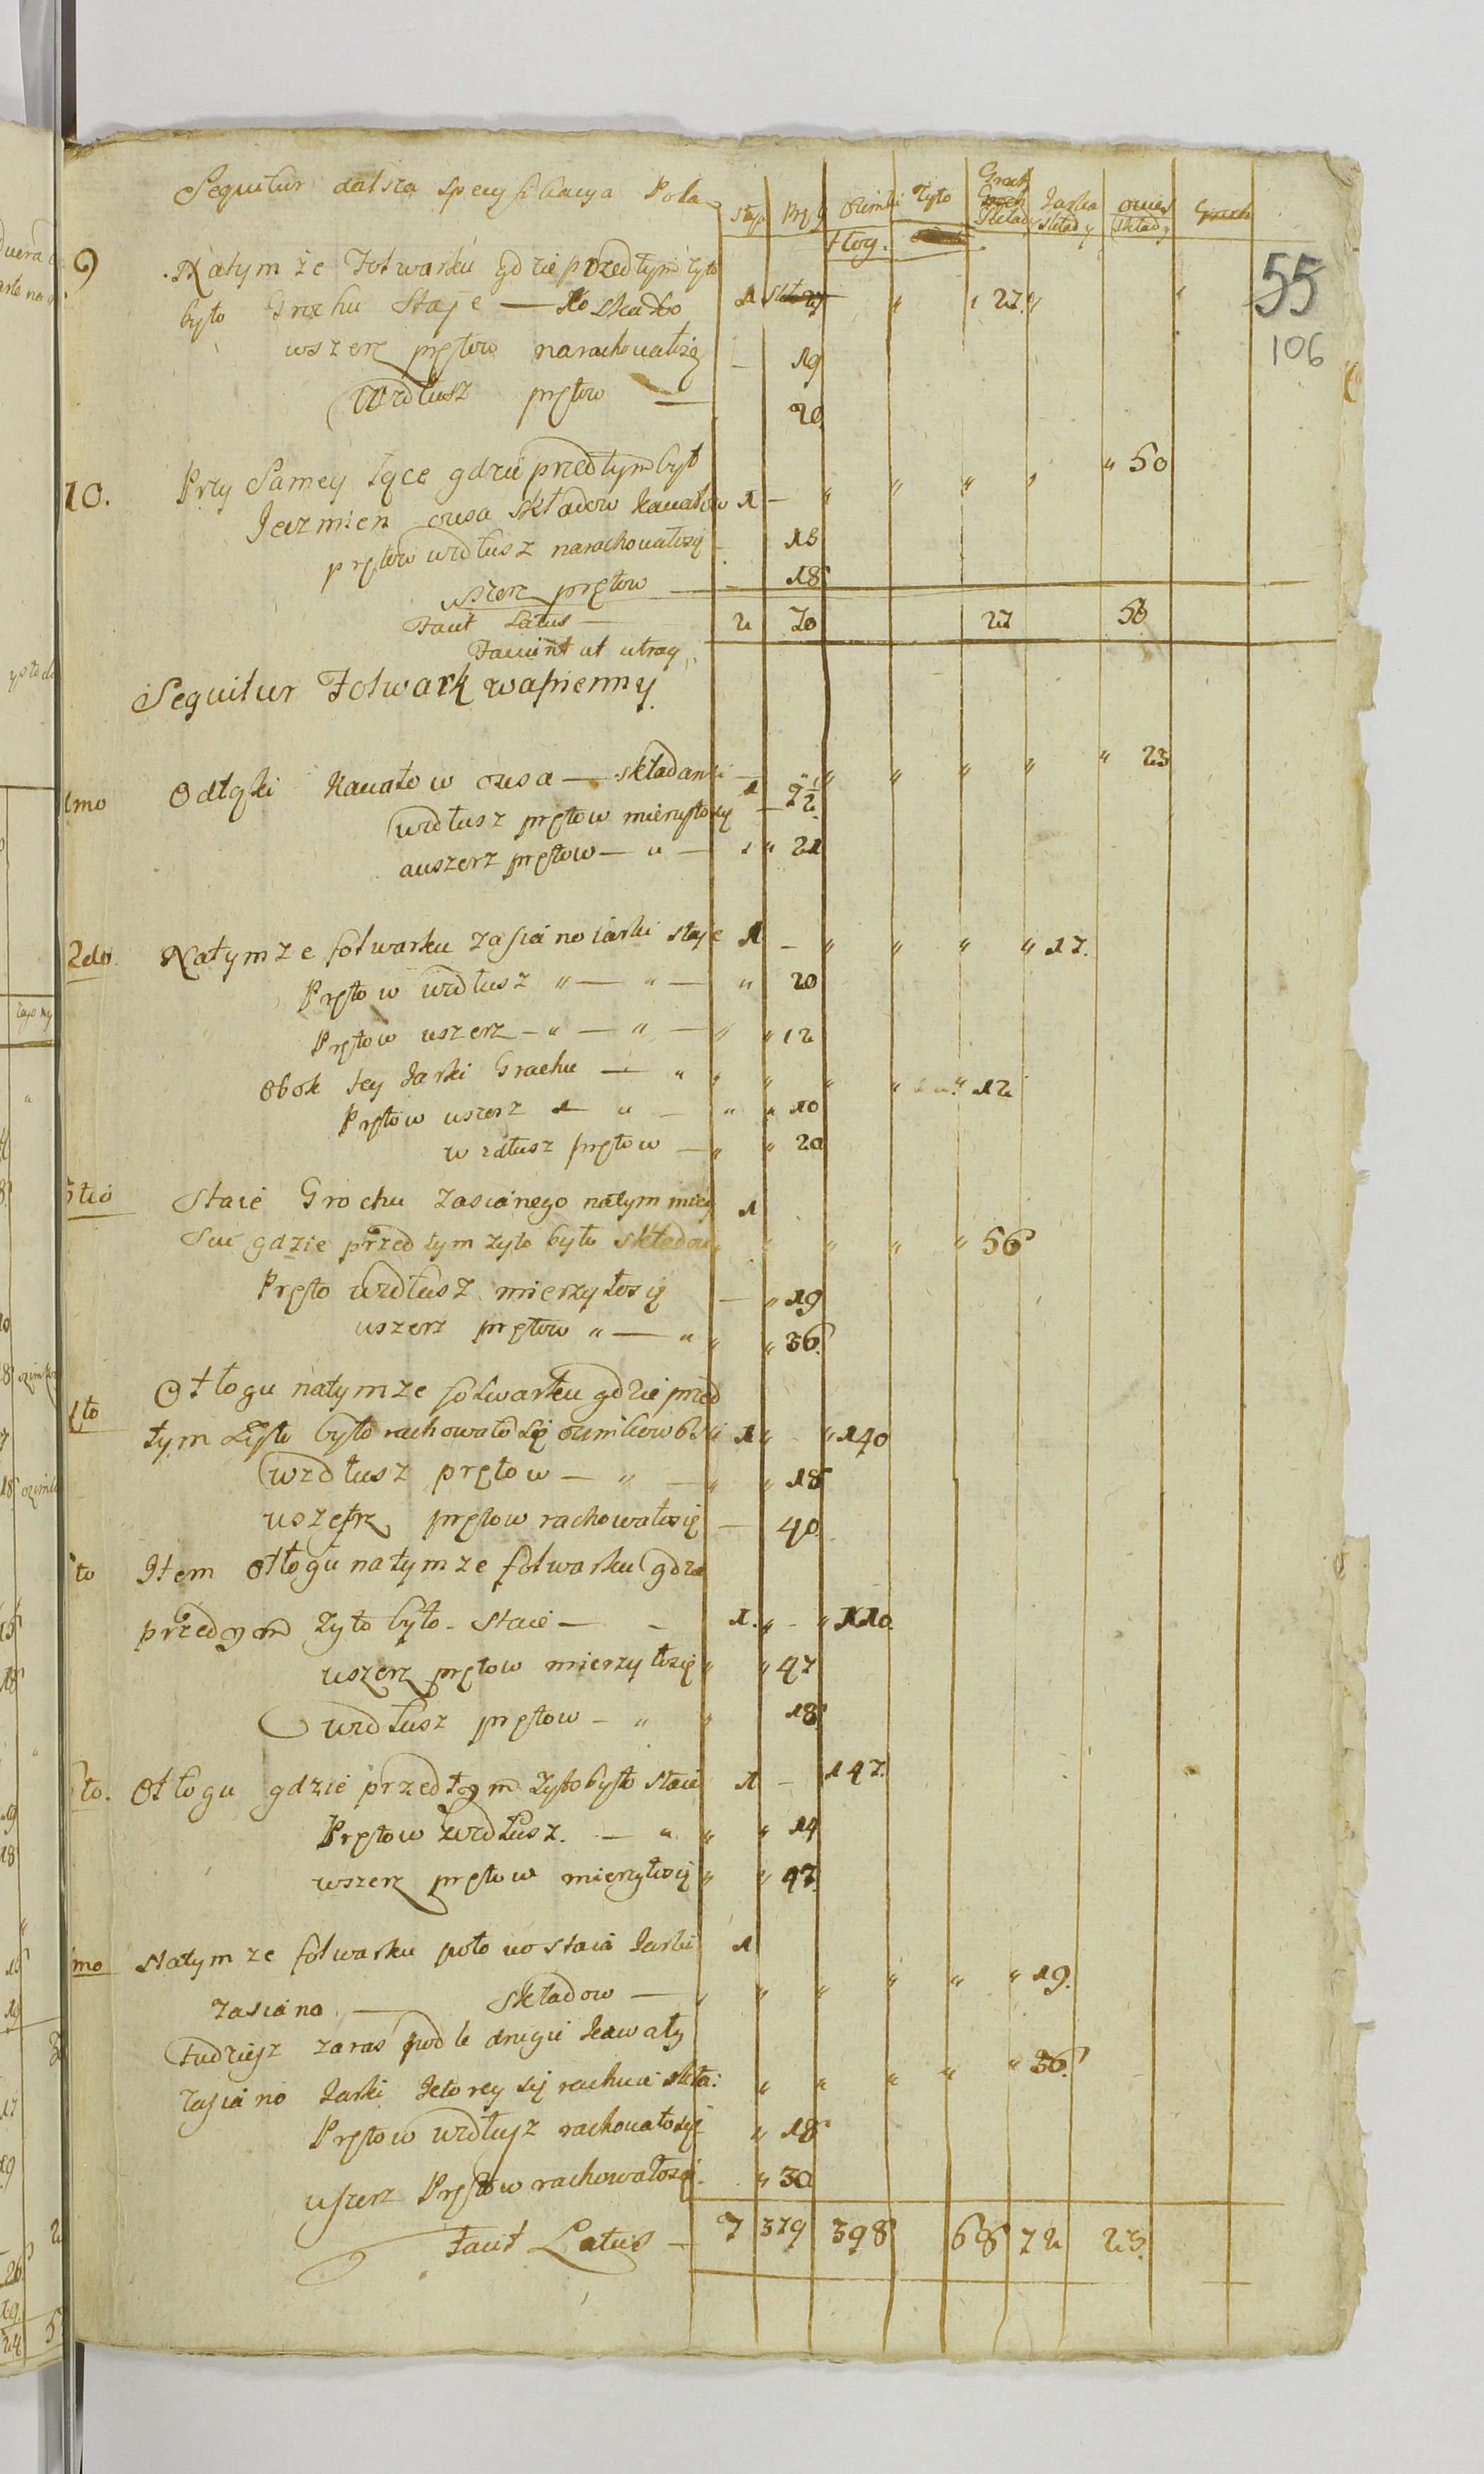 Sequitur dalsza specyfikacya Pola
Staje Pręty Ozimki Żyto Groch Składy Jarka składy owies składy Groch
Otłog.
55
106
9 Natym że Folwarku gdzie przed tym żyto
było Grochu Staje — 1 " " 27 "
wszerz prętow narachowałosię — 19
Wzdłusz prętow — 20
10. Przy Samey łące gdzie przed tym był
Jęczmien owsa składow kawałow 1 — " " " " " 50
prętow wzdłusz narachowałosię — 13
wszerz prętow — 18
Facit Latus — 2 70 27 50
Faciunt ut utraq
Sequitur Folwark wapienny
1mo Odłąki kawałow owsa — składanki — 1 " " " " " " 23
wzdłusz prętow mierzyłosię — 22
awszerz prętow — " — " " 21
2do Natymze folwarku zasiano iarki staje 1 — " " " " 17.
Prętow wzdłusz " — " — " 20
Prętow wszerz — " — " — " " 12
Obok tey Jarki Grochu — " " " " " " 12
Prętow wszerz — " — " " 10
wzdłusz prętow — " " 20
3tio Staie Grochu zasianego natym miey 1
scu gdzie przed tym zyto było składow " " " " " 56
Pręto wzdłusz mierzyłosię — " 19
wszerz prętow " — " " " 36.
4to Otłogu natymze folwarku gdzie przed
tym Zyto było rachowało się ozimkow 1 " - " 140
wzdłusz prętow — " — " " 18
wszerz prętow rachowałosię — 40.
to Item Otłogu natymze folwarku gdzie
przedtym Zyto było - staie — - 1. " - " 110.
wszerz prętow mierzyłosię " " 47
wzdłusz prętow — " " 18
to. Otłogu gdzie przedtym Zyto było staie 1 — 147.
Prętow wzdłusz. — " " " 14
wszerz prętow mierzyłosię " " 47.
mo Natymze folwarku staia Jarki 1
zasiano — składow — " " " " " " 19.
Tudziesz zaras podle drugie kawały
zasiano Jarki ktorey się rachuie skła: " " " " " 36.
Prętow wzdłusz rachowałosię " 18
wszerz Prętow rachowałosię. " 30
Facit Latus — 7 379 398 68 72 23.